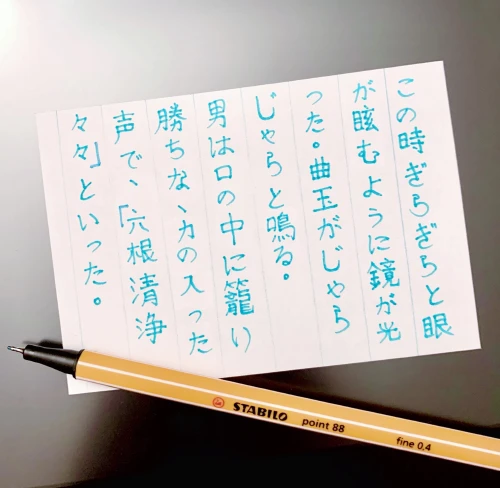 この時ぎらぎらと眼
が眩むように鏡が光
った。曲玉がじゃら
じゃらと鳴る。
男は口の中に籠り
勝ちな、力の入った
声で、「六根清浄
々々」といった。
STABILO point 88 fine 0,4